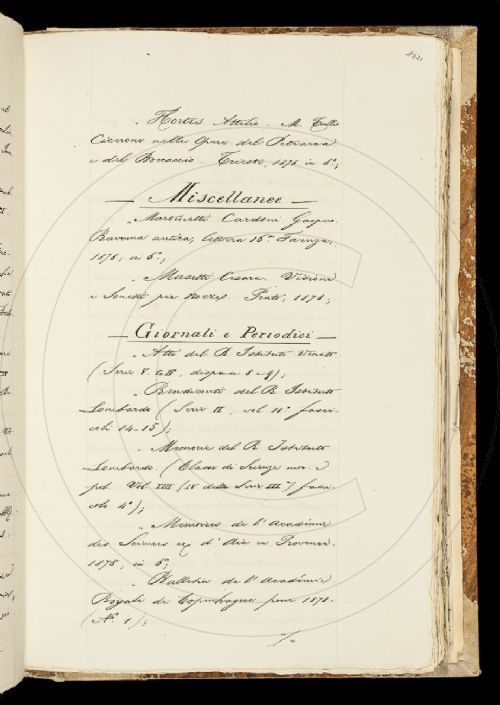 „ Hortis Attilio – M. Tullio
Cicerone nelle opere del Petrarca
e del Boccaccio. Trieste, 1878 in 8°;
— Miscellanee —
„ Martinetti Cardoni Gaspare
Ravenna antica, lettera 16ª Faenza,
1878, in 8°;
„ Masetti Cesare. Visioni
e Sonetti per nozze. Prato, 1878;
— Giornali e Periodici —
„ Atti del R. Istituto Veneto
(Serie V. to IV, dispensa 8 e 9);
„ Rendiconti del R. Istituto
Lombardo (Serie II, vol. 11° fasci-
coli 14–15);
„ Memorie del R. Istituto
Lombardo. (Classe di Scienze mor. e
pol. Vol. XIII (IV della Serie III) fasci-
colo 4°);
„ Mémoires de l'Académie
des Sciences d'Aix en Provence
1878, in 8°;
„ Bulletin de l'Académie
Royale de Copenhague pour 1878.
(N.° 1);